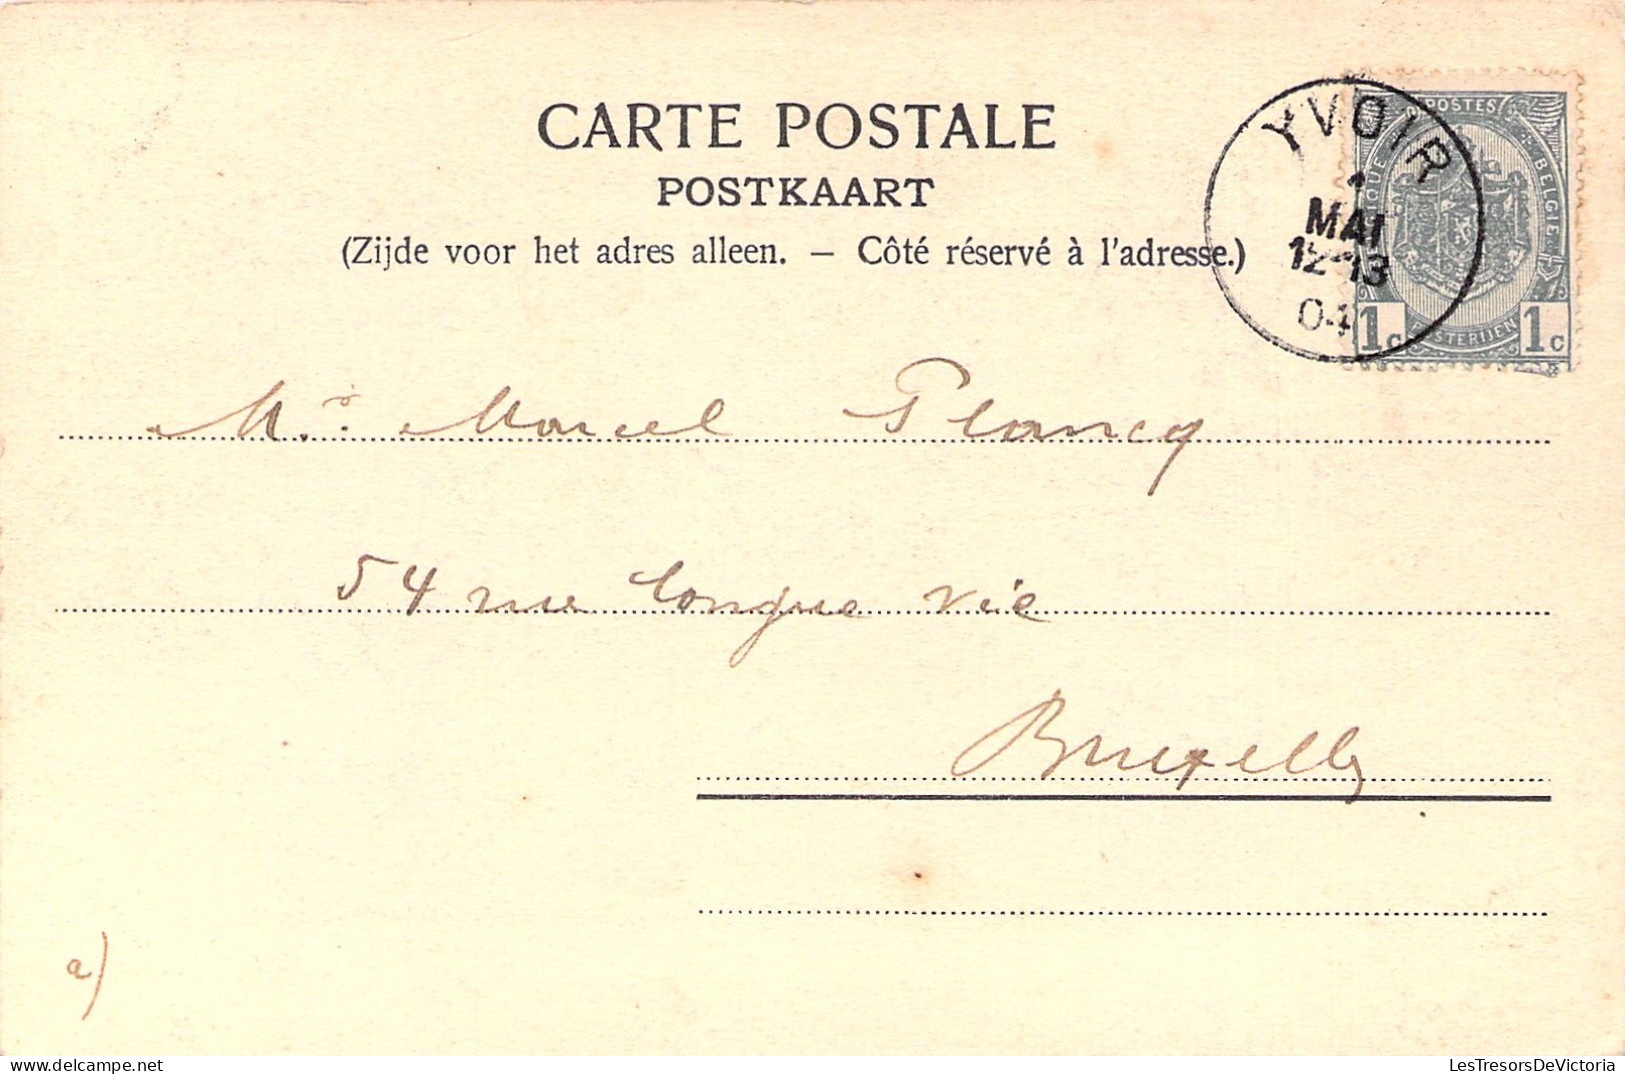 CARTE POSTALE
POSTKAART
(Zijde voor het adres alleen. – Côté réservé à l'adresse.)
YVOIR
1
MAI
12-13
04
POSTES
BELGIE
POSTERIJEN
1c 1c
Mr. Marcel Plancq
54 rue longue vie
Bruxelles
a)
LesTresorsDeVictoria